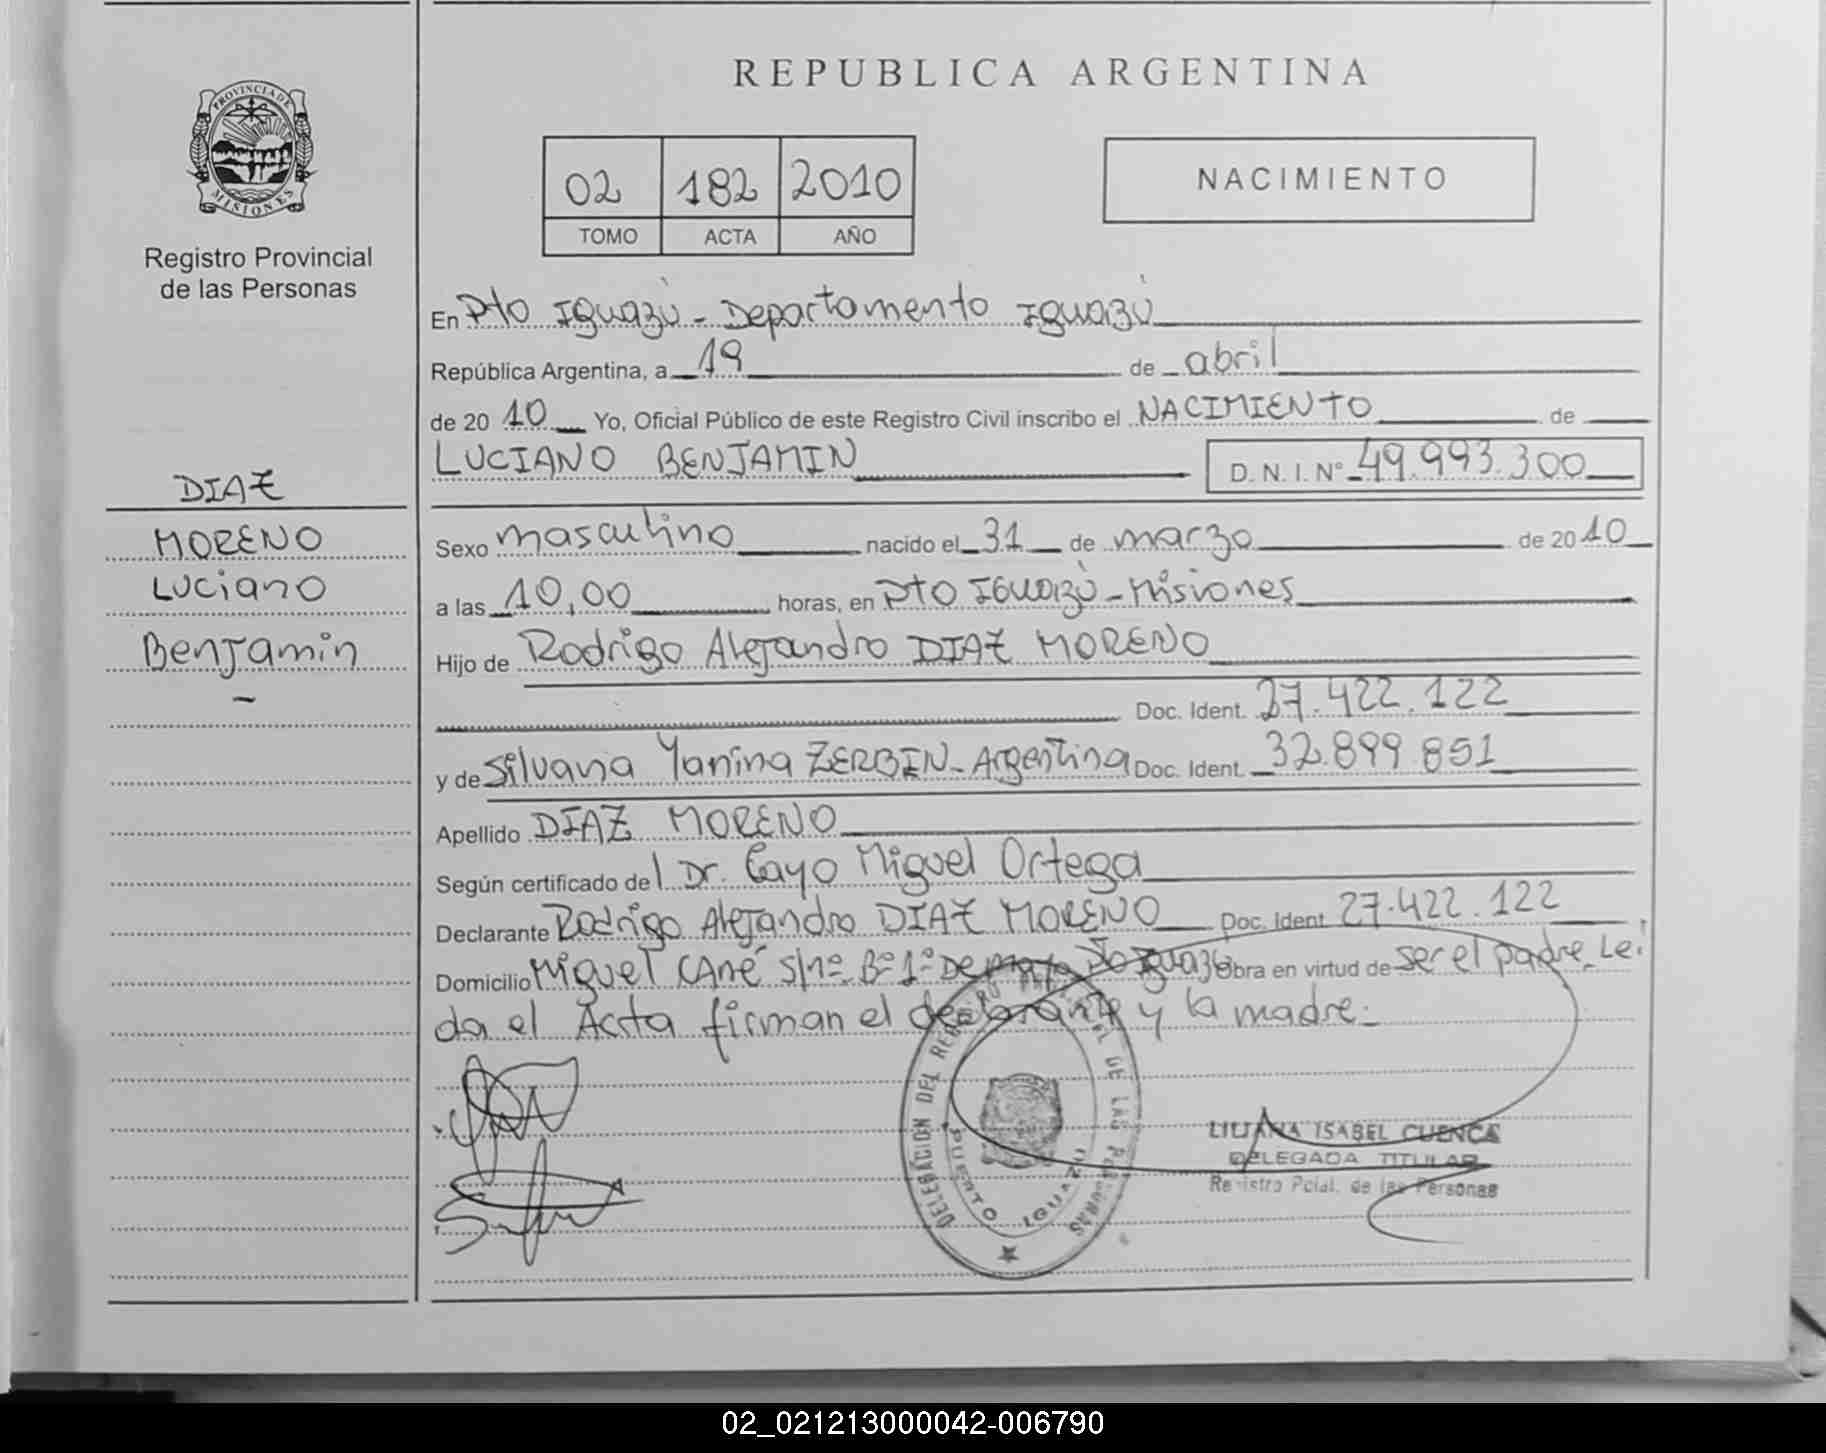 REPUBLICA ARGENTINA
PROVINCIA DE
MISIONES
Registro Provincial
de las Personas
02 182 2010
TOMO ACTA AÑO
NACIMIENTO
En Pto Iguazú - Departamento Iguazú
República Argentina, a 19 de abril
de 2010 Yo, Oficial Público de este Registro Civil inscribo el NACIMIENTO de
LUCIANO BENJAMIN D. N. I. Nº 49.993.300
DIAZ
MORENO
Luciano
Benjamin
-
Sexo masculino nacido el 31 de marzo de 2010
a las 10,00 horas, en Pto Iguazú - Misiones
Hijo de Rodrigo Alejandro DIAZ MORENO
Doc. Ident. 27.422.122
y de Silvana Yanina ZERBIN - Argentina Doc. Ident. 32.899.851
Apellido DIAZ MORENO
Según certificado del Dr. Cayo Miguel Ortega
Declarante Rodrigo Alejandro DIAZ MORENO Doc. Ident. 27.422.122
Domicilio Miguel Cané S/nº Bº 1º De mayo Pto Iguazú Obra en virtud de ser el padre. Leí
da el Acta firman el declarante y la madre.-
DELEGACION DEL REGISTRO PROVINCIAL DE LAS PERSONAS
PUERTO IGUAZU
LILIANA ISABEL CUENCA
DELEGADA TITULAR
Registro Pcial. de las Personas
02_021213000042-006790